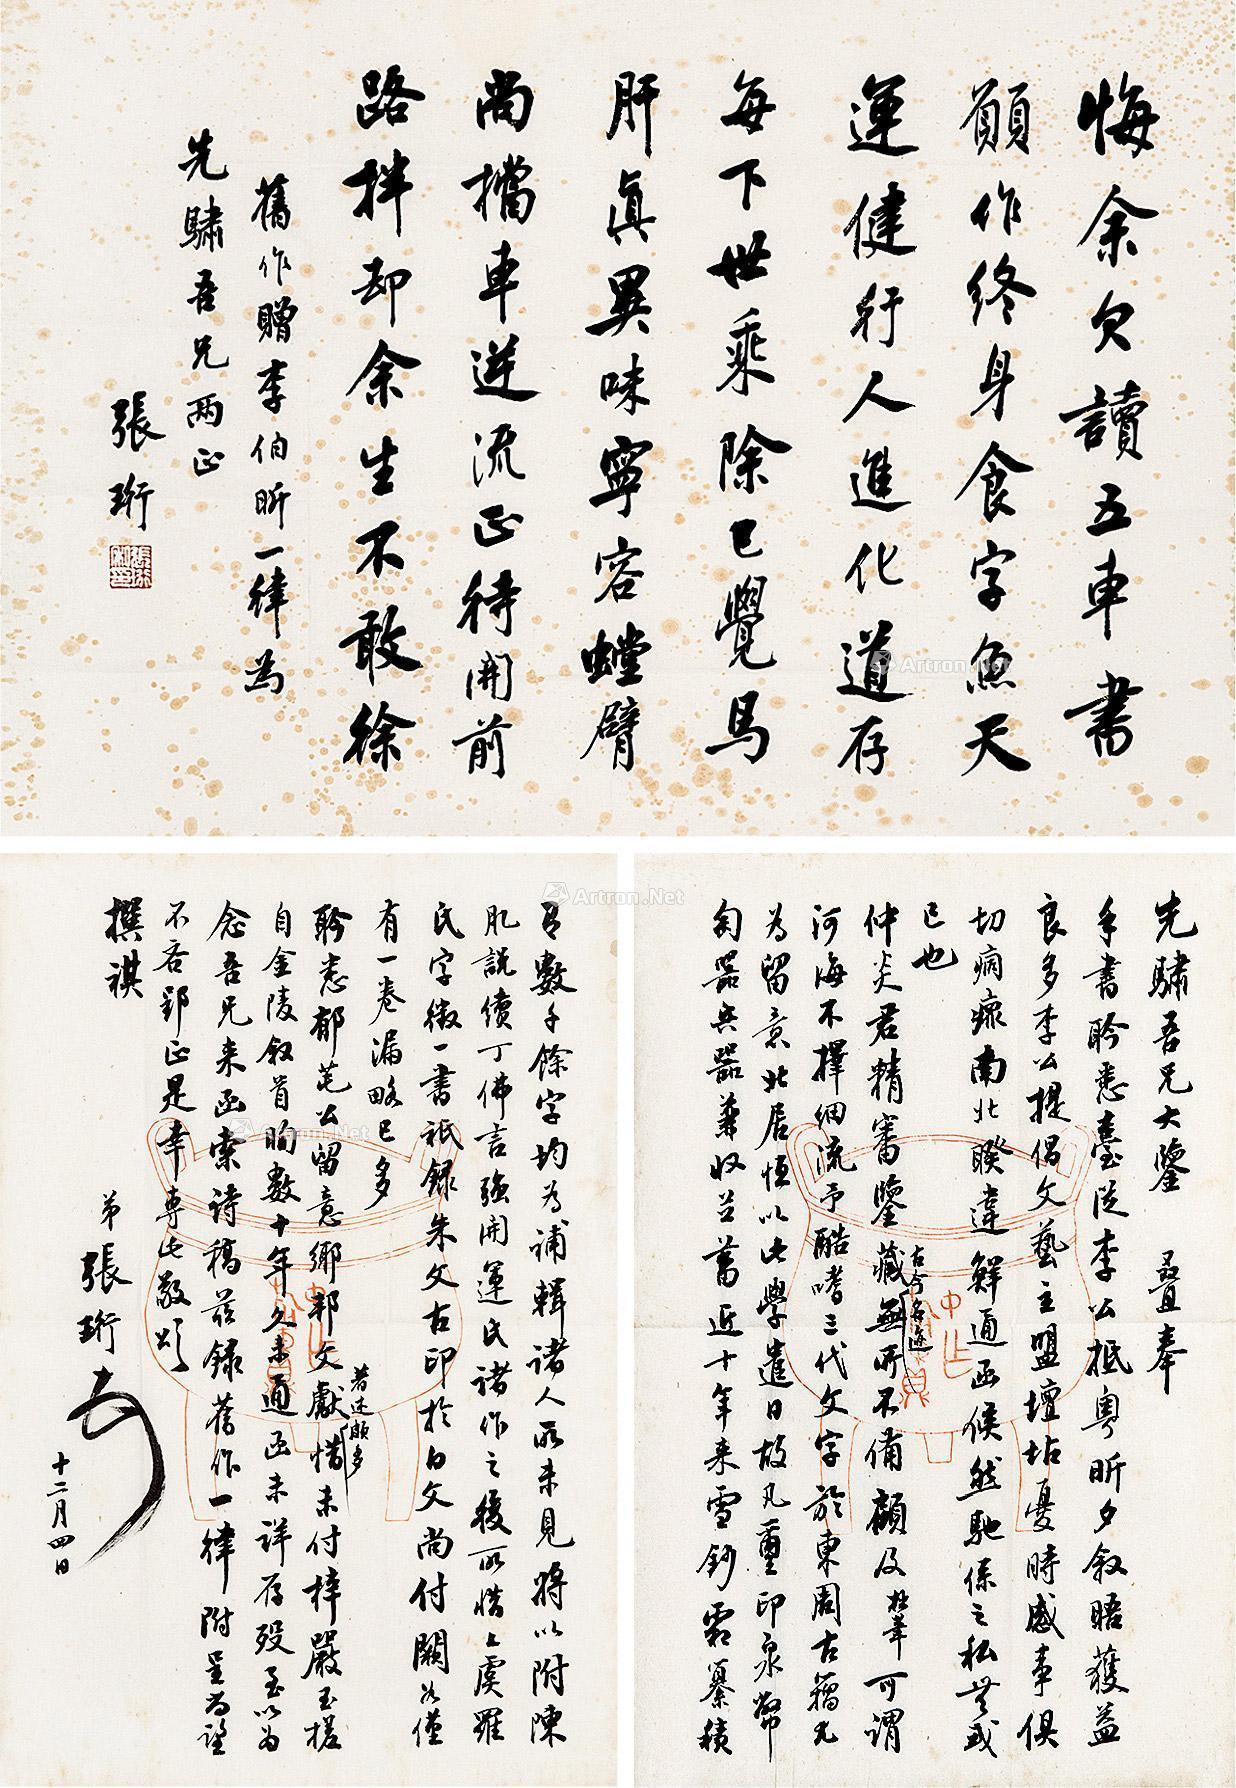 悔余欠讀五車書
願作終身食字魚天
運健行人進化道存
每下世乘除已覺馬
肝真異味寧容螳臂
尚擋車逆流正待開前
路拌却余生不敢徐
舊作贈李伯昕一律為
先驌吾兄兩正
張珩
先驌吾兄大鑒 疊奉
手書聆悉臺從李公抵粵昕夕叙晤獲益
良多李公提倡文藝主盟壇坫憂時感事俱
切痌瘝南北睽違鮮通函候然馳係之私無或
已也
仲炎君精審鑒藏古今名迹無所不備顧及拙筆可謂
河海不擇細流予酷嗜三代文字於東周古籀尤
為留意北居恒以此學遣日故凡璽印泉幣
匋器兵器兼收並蓄近十年來雪鈔霜纂積
百數千餘字均為補輯諸人所未見將以附陳
凡說續丁佛言強開運氏諸作之後所惜上虞羅
氏字徵一書祇錄朱文古印於白文尚付闕如僅
有一卷漏略已多
聆悉郁芑公留意鄉邦文獻著述頗多惜未付梓嚴玉槎
自金陵叙首昫數十年久未通函未詳存歿至以為
念吾兄來函索詩稿茲錄舊作一律附呈尚望
不吝郢正是幸專此敬頌
撰祺
弟張珩
十二月四日
Artron.Net
Artron.Net
Artron.Net
Artron.Net